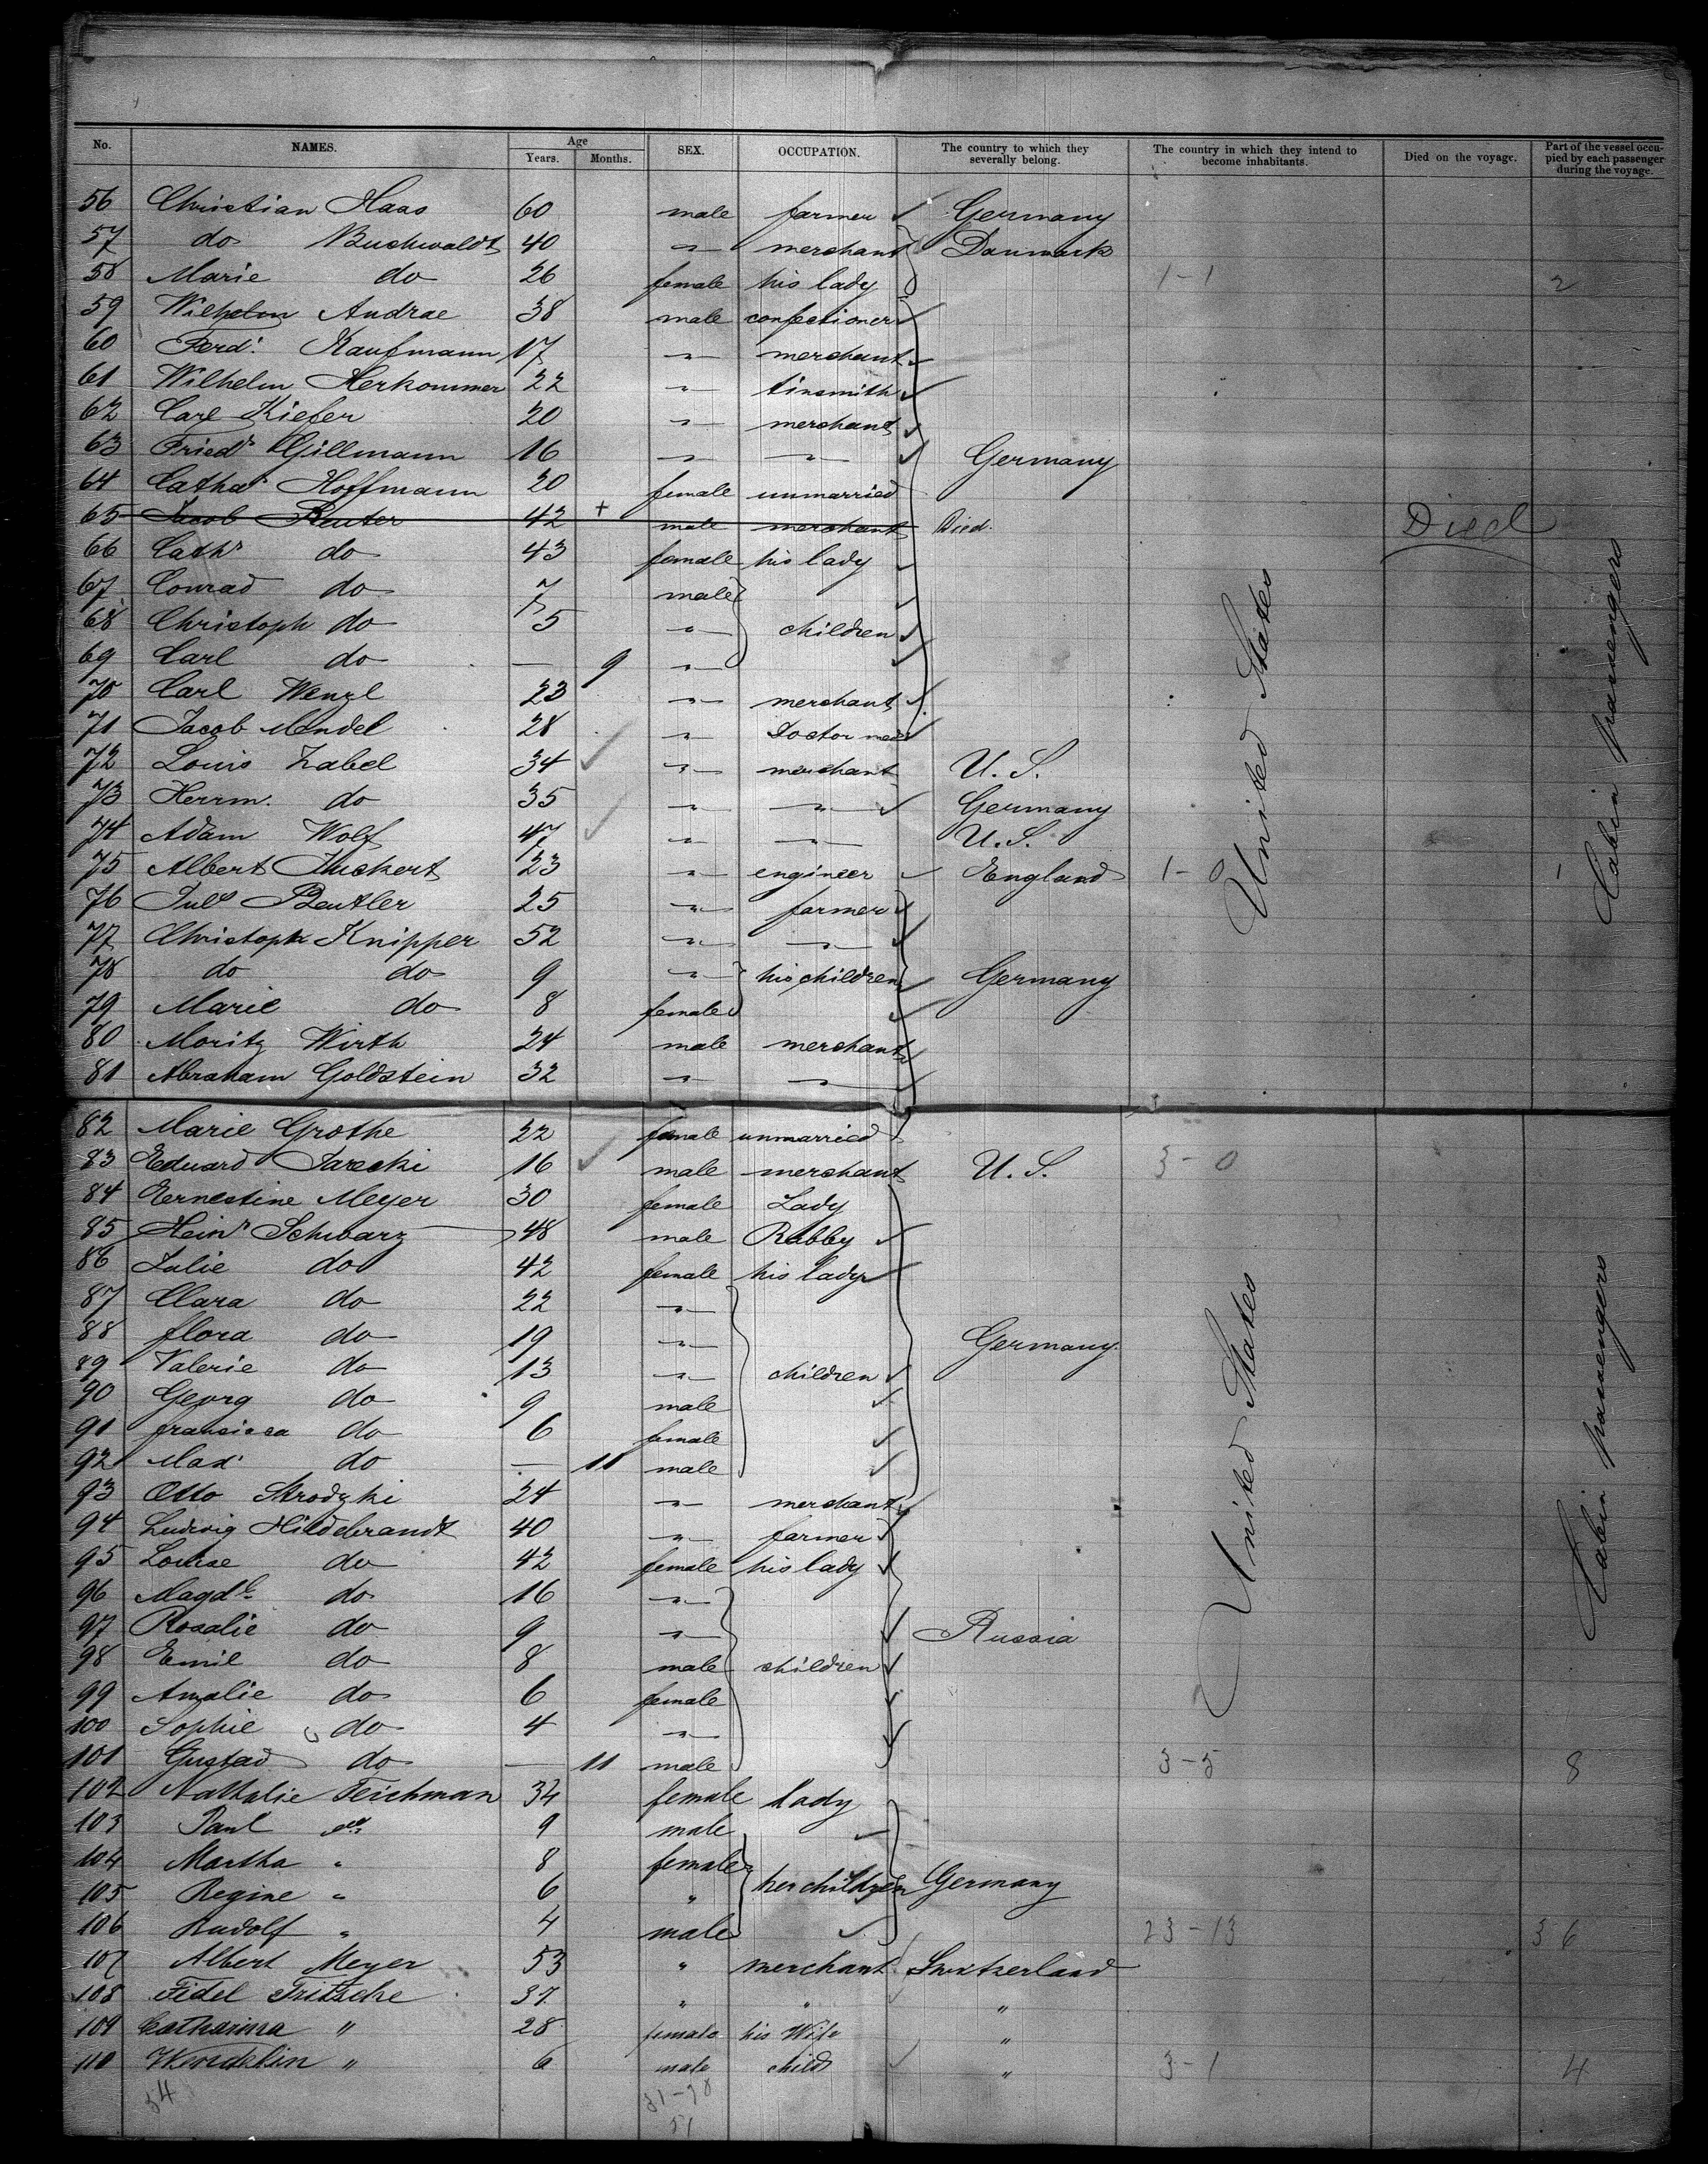 No. NAMES. Age Years. Months. SEX. OCCUPATION. The country to which they severally belong. The country in which they intend to become inhabitants. Died on the voyage. Part of the vessel occupied by each passenger during the voyage.
56 Christian Haas 60 male farmer Germany
57 do Buchwaldt 40 " merchant Danmark
58 Marie do 26 female his lady 1-1 2
59 Wilhelm Andrae 38 male confectioner
60 Ferd. Kaufmann 17 " merchant
61 Wilhelm Herkommer 22 " tinsmith
62 Carl Kiefer 20 " merchant
63 Friedr Gillmann 16 " " Germany
64 Cathar Hoffmann 20 female unmarried
65 Jacob Reuter 42 + male merchant Died. Died
66 Cathr do 43 female his lady
67 Conrad do 7 male
68 Christoph do 5 " children
69 Carl do — 9 "
70 Carl Wenzl 23 " merchant
71 Jacob Mendel 28 " Doctor med
72 Louis Zabel 34 " merchant U. S.
73 Herrm. do 35 " " Germany
74 Adam Wolf 47 " " U. S.
75 Albert Huckert 23 " engineer England 1-0 1
76 Juls Beutler 25 " farmer
77 Christoph Knipper 52 " "
78 do do 9 " his children Germany
79 Marie do 8 female
80 Moritz Wirth 24 male merchant
81 Abraham Goldstein 32 " "
United States
Cabin passengers
82 Marie Grothe 22 female unmarried
83 Eduard Jarecki 16 male merchant U. S. 3-0
84 Ernestine Meyer 30 female Lady
85 Heinr Schwarz 48 male Rabby
86 Julie do 42 female his lady
87 Clara do 22 "
88 flora do 19 " Germany.
89 Valerie do 13 " children
90 Georg do 9 male
91 fransisca do 6 female
92 Max do — 11 male
93 Otto Strodzki 24 " merchant
94 Ludwig Hildebrandt 40 " farmer
95 Louise do 42 female his lady
96 Magdl. do 16 "
97 Rosalie do 9 " Russia
98 Emil do 8 male children
99 Amalie do 6 female
100 Sophie do 4 "
101 Gustad do — 11 male 3-5 8
102 Nathalie Teichman 34 female Lady
103 Paul do 9 male
104 Martha " 8 female
105 Regine " 6 " her children Germany
106 Rudolf " 4 male 23-13 36
107 Albert Meyer 53 " merchant Switzerland
108 Fidel Fritzsche 37 " " "
109 Catharina " 28 female his Wife "
110 Wendelin " 6 male child " 3-1 4
United States
Cabin passengers
34